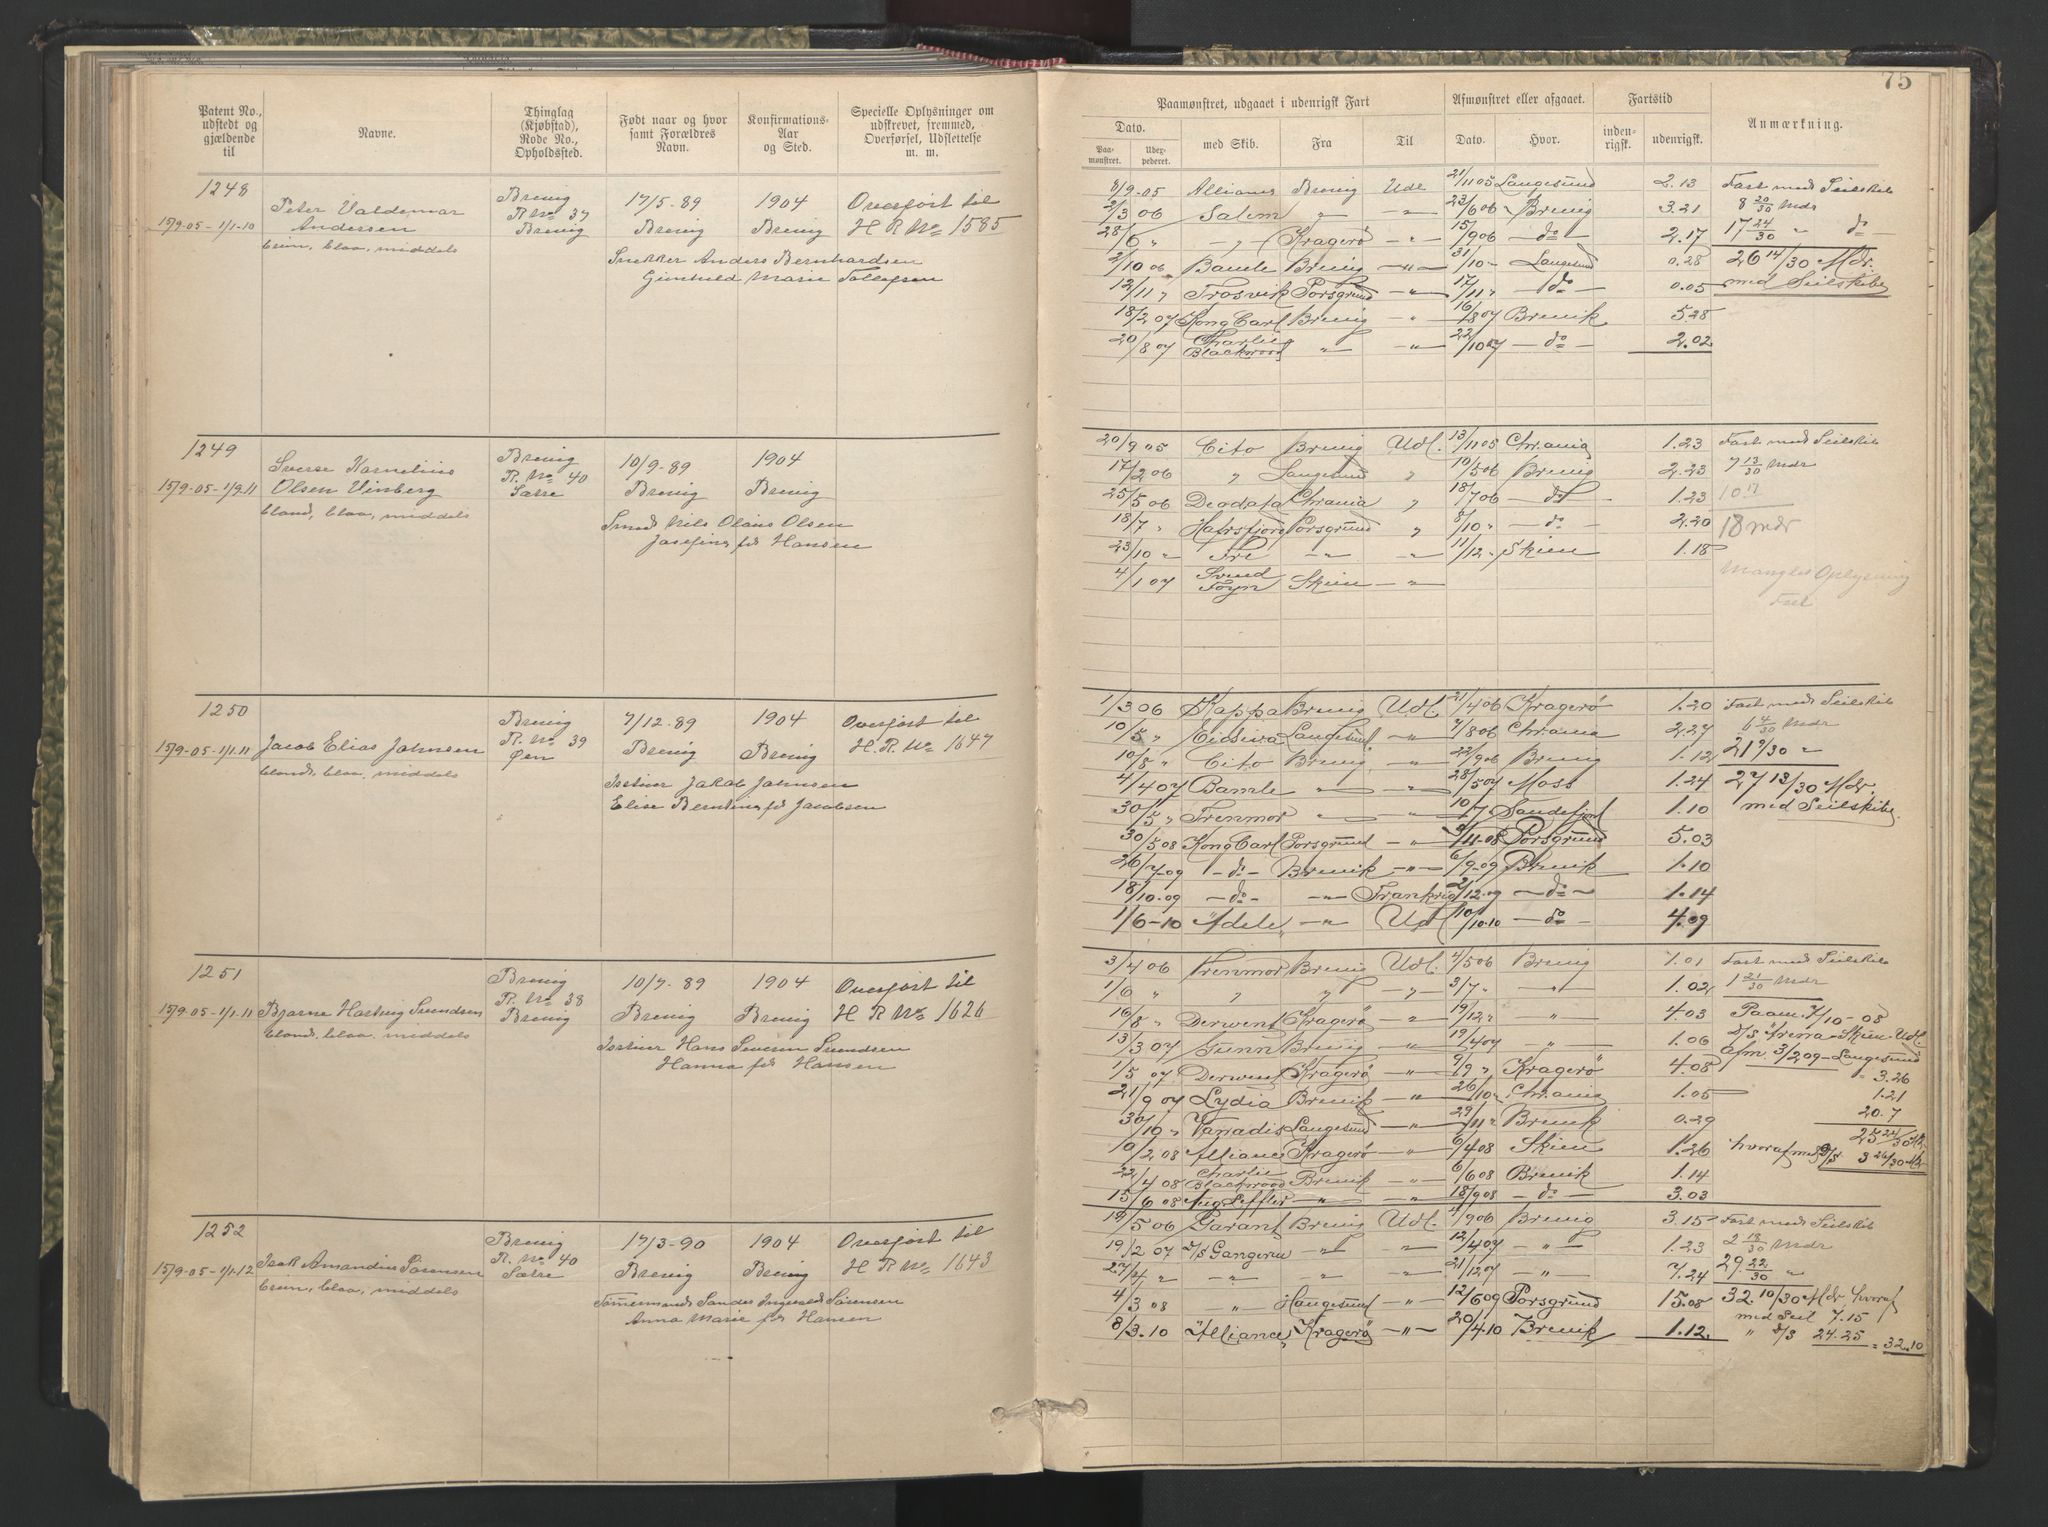 75
Patent No., udstedt og gjældende til
Navne.
Thinglag (Kjøbstad), Rode No., Opholdssted.
Født naar og hvor samt Forældres Navn.
Konfirmations-Aar og Sted.
Specielle Oplysninger om udskrevet, fremmed, Overførsel, Udslettelse m. m.
Paamønstret, udgaaet i udenrigsk Fart
Afmønstret eller afgaaet.
Fartstid
Anmærkning.
Dato.
Paamønstret.
Udexpederet.
med Skib.
Fra
Til
Dato.
Hvor.
indenrigsk.
udenrigsk.
1248
15/9-05-1/1-10
Peter Valdemar
Andersen
brun, blaa, middels
Brevig
R. No 37
Brevig
17/5-89
Brevig
1904
Brevig
Snekker Anders Bernhardsen
Gunhild Marie Tollefsen
Overført til
H R No 1585
8/9-05 Alliance Brevig Udl 21/11 05 Langesund 2.13 Fart med Seilskib
2/3 06 Salem " -"- 23/6 06 Brevig 3.21 8 20/30 Mdr
28/6 " -"- Kragerö -"- 15/9 06 -do- 2.17 17 24/30 " do
2/10 06 Bamle Brevig -"- 31/10 - Langesund 0.28 26 14/30 Mdr.
12/11 " Frosvik Porsgrund -"- 17/11 " -do- 0.05 med Seilskibe
18/2 07 Kong Carl Brevig -"- 16/8 07 Brevik 5.28
20/8 07 Charlie Blackwood " -"- 22/10 07 -do- 2.02
1249
15/9-05-1/9.11
Sverse Kornelius
Olsen Vinberg
blond, blaa, middels
Brevig
R. No 40
Sætre
10/9-89
Brevig
1904
Brevig
Smed Nils Olaus Olsen
Josefine fdt Hansen
20/9 05 Cito Brevig Udl. 13/11 05 Chrania 1.23 Fart med Seilskib
17/2 06 " Langesund " 10/5 06 Brevig 2.23 7 13/30 Mdr
25/5 06 Deodata Chrania " 18/7 06 -do- 1.23 10.17
18/7 " Hafrsfjord Porsgrund " 8/10 " -do- 2.20 18 mdr
23/10 " Fre -"- " 11/12 " Skien 1.18
4/1 07 Svend Foyn Skien -"-
Mangler Oplysning
1250
15/9-05-1/1.11
Jacob Elias Johnsen
blond, blaa, middels
Brevig
R. No 39
Øen
7/12-89
Brevig
1904
Brevig
Istier Jakob Johnsen
Elise Berntine fdt Jacobsen
Overført til
H. R. No 1647
1/3 06 Kappa Brevig Udl. 21/4 06 Kragerö 1.20 Fart med Seilskib
10/5 " Eidsiva Langesund -"- 7/8 06 Chrania 2.27 6 4/30 Mdr
10/8 " Cito Brevig " 22/9 06 Brevig 1.12 21 9/30 "
4/4 07 Bamle -"- -"- 28/5 07 Moss 1.24 27 13/30 Mdr.
30/5 " Frenmor -"- -"- 10/7 Sandefjord 1.10 med Seilskibe
30/5 08 Kong Carl Porsgrund -"- 3/11-08 Porsgrund 5.03
26/7-09 -do- Brevik -"- 6/9-09 Brevik 1.10
18/10-09 -do- -"- Frankrig 2/12-09 -do- 1.14
1/6-10 "Adele" -"- Udl 10/10.10 -do- 4.09
1251
15/9-05-1/1.11
Bjarne Hartvig Svendsen
blond, blaa, middels
Brevig
R. No 38
Brevig
10/7-89
Brevig
1904
Brevig
Istier Hans Severin Svendsen
Hanna fdt Hansen
Overført til
H R No 1626
3/4 06 Frenmor Brevig Udl. 4/5 06 Brevig 1.01 Fart med Seilskib
1/6 " " " " 3/7 " -"- 1.02 1 21/30 Mdr
16/8 " Derwent Kragerö -"- 19/12 " -"- 4.03 Paam. 7/10-08
13/3 07 Gunn Brevig -"- 19/4 07 -"- 1.06 D/S "Arena" Skien-Udl.
1/5 07 Derwent Kragerö -"- 9/9 " Kragerö 4.08 afm. 3/2 09-Langesund
= 3.26
21/9 07 Lydia Brevik -"- 26/10 " Chrania 1.05 1.21
30/10 " Vanadis Langesund -"- 29/11 " Brevik 0.29 20.7
10/2 08 Alliance Kragerö -"- 6/4 08 Skien 1.26 25 24/30 M.
hvoraf med D/S 3 26/30 M.
22/4 08 Charlie Blackwood Brevik -"- 6/6 08 Brevik 1.14
15/6 08 Aug. Leffler -"- -"- 18/9 08 -do- 3.03
1252
15/9-05-1/1.12
Isak Amandius Sørensen
brun, blaa, middels
Brevig
R. No 40
Sætre
17/3-90
Brevig
1904
Brevig
Tömmermand Sander Ingvald Sørensen
Anna Marie fdt Hansen
Overført til
H R No 1643
19/5 06 Garant Brevig Udl. 4/9 06 Brevig 3.15 Fart med Seilskib
19/2 07 D/S Gangeren -"- -"- 12/4 07 -"- 1.23 2 18/30 Mdr
27/4 " -"- -"- -"- 21/12 07 -"- 7.24 29 22/30 "
4/3 08 " Haugesund -"- 12/6 09 Porsgrund 15.08 32.10/30 Mdr hvoraf
med Seil 7.15
8/3.10 "Alliance" Kragerö -"- 20/4.10 Brevik 1.12. " D/S 24.25 = 32.10